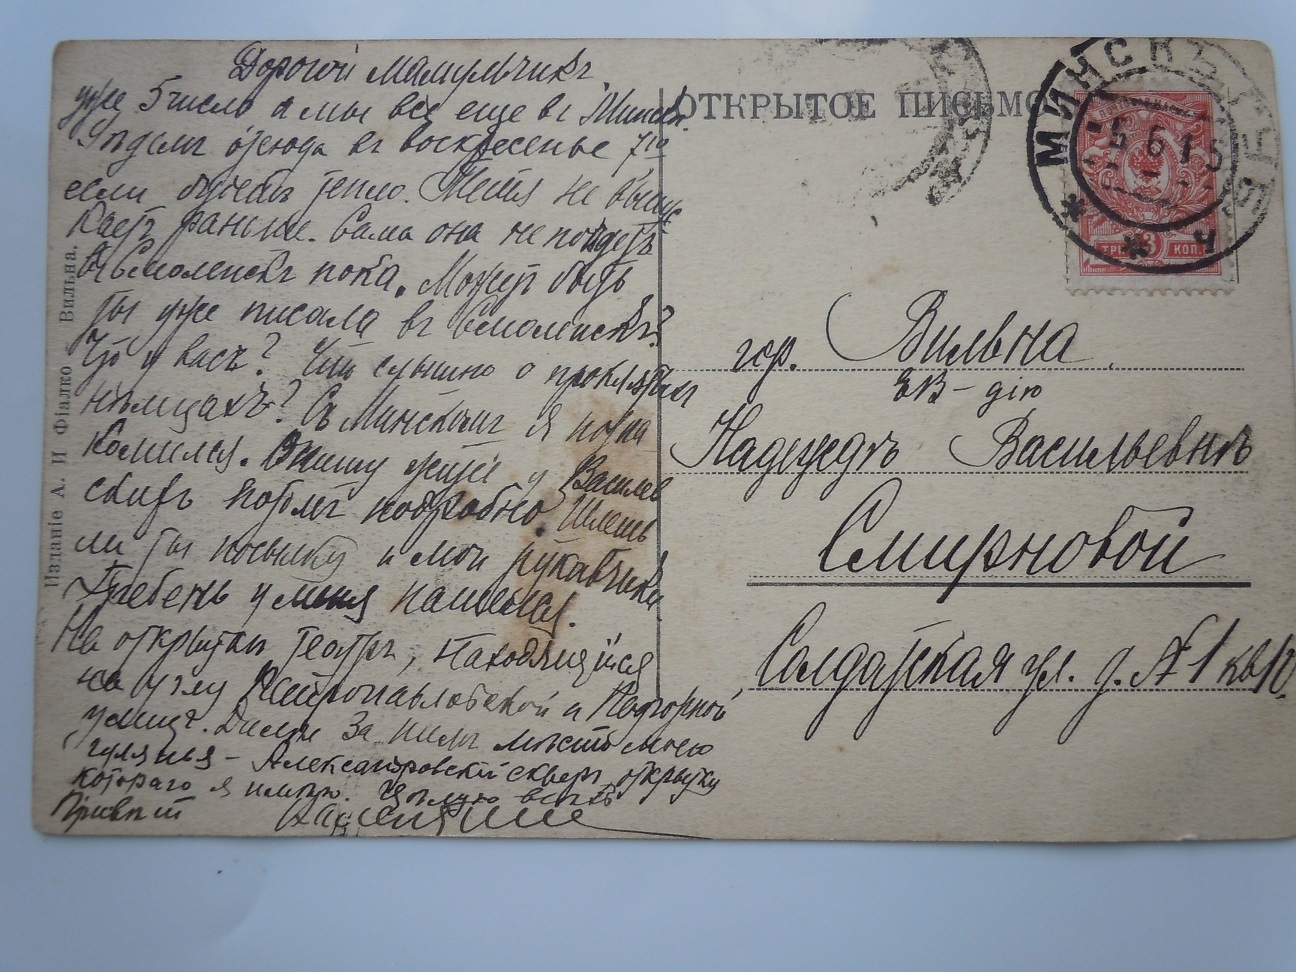 Дорогой Мамульчикъ
уже 5 число а мы все еще въ Минскѣ.
ѣдемъ отсюда въ воскресенье 7го
если будетъ тепло. Меня не выпус
каетъ раньше. Сама она не поѣдетъ
въ Смоленскъ пока. Можетъ быть
ты уже писала въ Смоленскъ?
Что у васъ? Что слышно о проклятыхъ
нѣмцахъ? Съ Минскомъ я позна
комился. Опишу у Василев
скихъ подробно. Шлешь
ли ты посылку и мои рукавчики.
Гребень у меня нашелся.
На открыткѣ театръ, находящійся
на углу Петропавловской и Подгорной
улицъ. Далѣе за нимъ мѣсто моего
гулянья - Александровскій скверъ, открытку
котораго я имѣю. Цѣлую всѣхъ
Привѣтъ
ОТКРЫТОЕ ПИСЬМО
МИНСКЪ ГУБ.
5 6 15
ТРИ 3 КОП.
гор. Вильна
ЕВ-дію
Надеждѣ Васильевнѣ
Смирновой
Солдатская ул. д. №1 кв 10.
Изданіе А. И Фіалко Вильна.